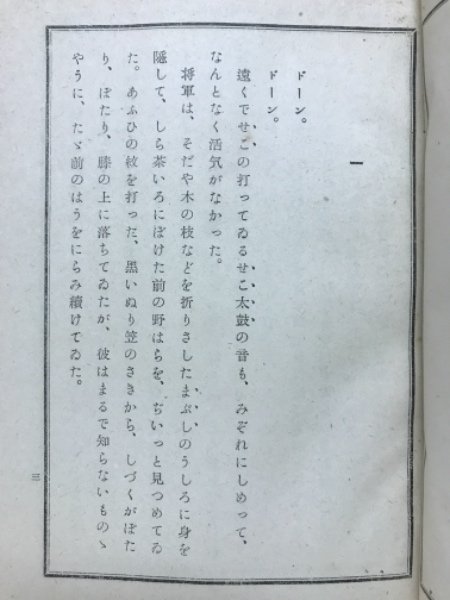 一
ドーン。
ドーン。
遠くでせこの打ってゐるせこ太鼓の音も、みぞれにしめって、
なんとなく活気がなかった。
将軍は、そだや木の枝などを折りさしたまぶしのうしろに身を
隠して、しら茶いろにぼけた前の野はらを、ぢいっと見つめてゐ
た。あふひの紋を打った、黒いぬり笠のさきから、しづくがぽた
り、ぽたり、膝の上に落ちてゐたが、彼はまるで知らないものゝ
やうに、たゞ前のはうをにらみ續けてゐた。
三